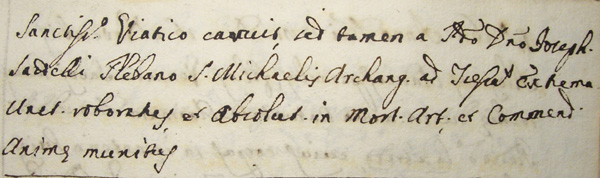 Sanctiss.o Viatico caruit, sed tamen a R.do D.no Joseph.
Sadelli Plebano S. Michaelis Archang. ad extrema
Unct. roboratus, et absolut. in Mort. Art. et Commend.
Animę munitus